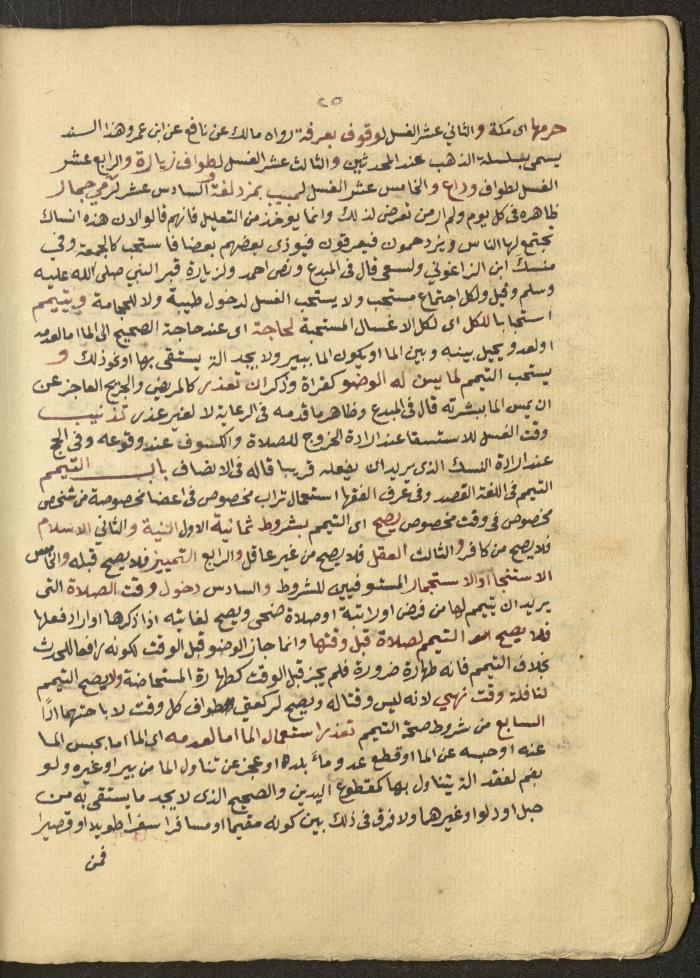 ٢٥
حرمها اى مكة والثاني عشر الغسل لوقوف بعرفة رواه مالك عن نافع عن ابن عمر وهذا السند
يسمى بسلسلة الذهب عند المحدثين والثالث عشر الغسل لطواف زيارة والرابع عشر
الغسل لطواف وداع والخامس عشر الغسل لمبيت بمزدلفة والسادس عشر لرمي جمار
ظاهره في كل يوم ولم ار من تعرض لذلك وانما يوخذ من التعليل فانهم قالوا لان هذه انساك
تجتمع لها الناس ويزدحمون فيعرقون فيوذى بعضهم بعضا فاستحب كالجمعة وفي
منسك ابن الزاغوني ولسعى قال في المبدع ونص احمد ولزيارة قبر النبي صلى الله عليه
وسلم وقيل ولكل اجتماع مستحب ولا يستحب الغسل لدخول طيبة ولا للحجامة ويتيمم
استحبابا للكل اى لكل الاغسال المستحبة لحاجة اى عند حاجة الصحيح الى الما اما لعدمه
او لعدو يحيل بينه وبين الما او يكون الما ببير ولا يجد الة يستقى بها او نحو ذلك و
يستحب التيمم لما يسن له الوضو كقراة وذكر ان تعذر كالمريض والجريح العاجز عن
ان يمس الما ببشرته قال في المبدع وظاهر ما قدمه في الرعاية لا لغير عذر تذنيب
وقت الغسل للاستسقا عند ارادة الخروج للصلاة والكسوف عند وقوعه وفي الحج
عند ارادة النسك الذى يريد ان يفعله قريبا قاله في الانصاف باب التيمم
التيمم في اللغة القصد وفي عرف الفقها استعمال تراب مخصوص في اعضا مخصوصة من شخص
مخصوص في وقت مخصوص يصح اى التيمم بشروط ثمانية الاول النية والثاني الاسلام
فلا يصح من كافر والثالث العقل فلا يصح من غير عاقل والرابع التمييز فلا يصح قبله والخامس
الاستنجا او الاستجمار المستوفيين للشروط والسادس دخول وقت الصلاة التى
يريد ان يتيمم لها من فرض او راتبة او صلاة ضحى ويصح لفائتة اذا ذكرها او اراد فعلها
فلا يصح التيمم لصلاة قبل وقتها وانما جاز الوضو قبل الوقت لكونه رافعا للحدث
بخلاف التيمم فانه طهارة ضرورة فلم يجز قبل الوقت كطهارة المستحاضة ولا يصح التيمم
لنافلة وقت نهي لانه ليس وقتا له ويصح لركعتي طواف كل وقت لاباحتهما اذا
السابع من شروط صحة التيمم تعذر استعمال الما اما لعدمه اى الما اما بحبس الما
عنه او حبسه عن الما او قطع عدو ماء بلده او عجز عن تناول الما من بير او غيره ولو
بفم لفقد الة يتناول بها كمقطوع اليدين والصحيح الذى لا يجد ما يستقى به من
حبل او دلو او غيرها ولا فرق في ذلك بين كونه مقيما او مسافرا سفرا طويلا او قصيرا
فمن